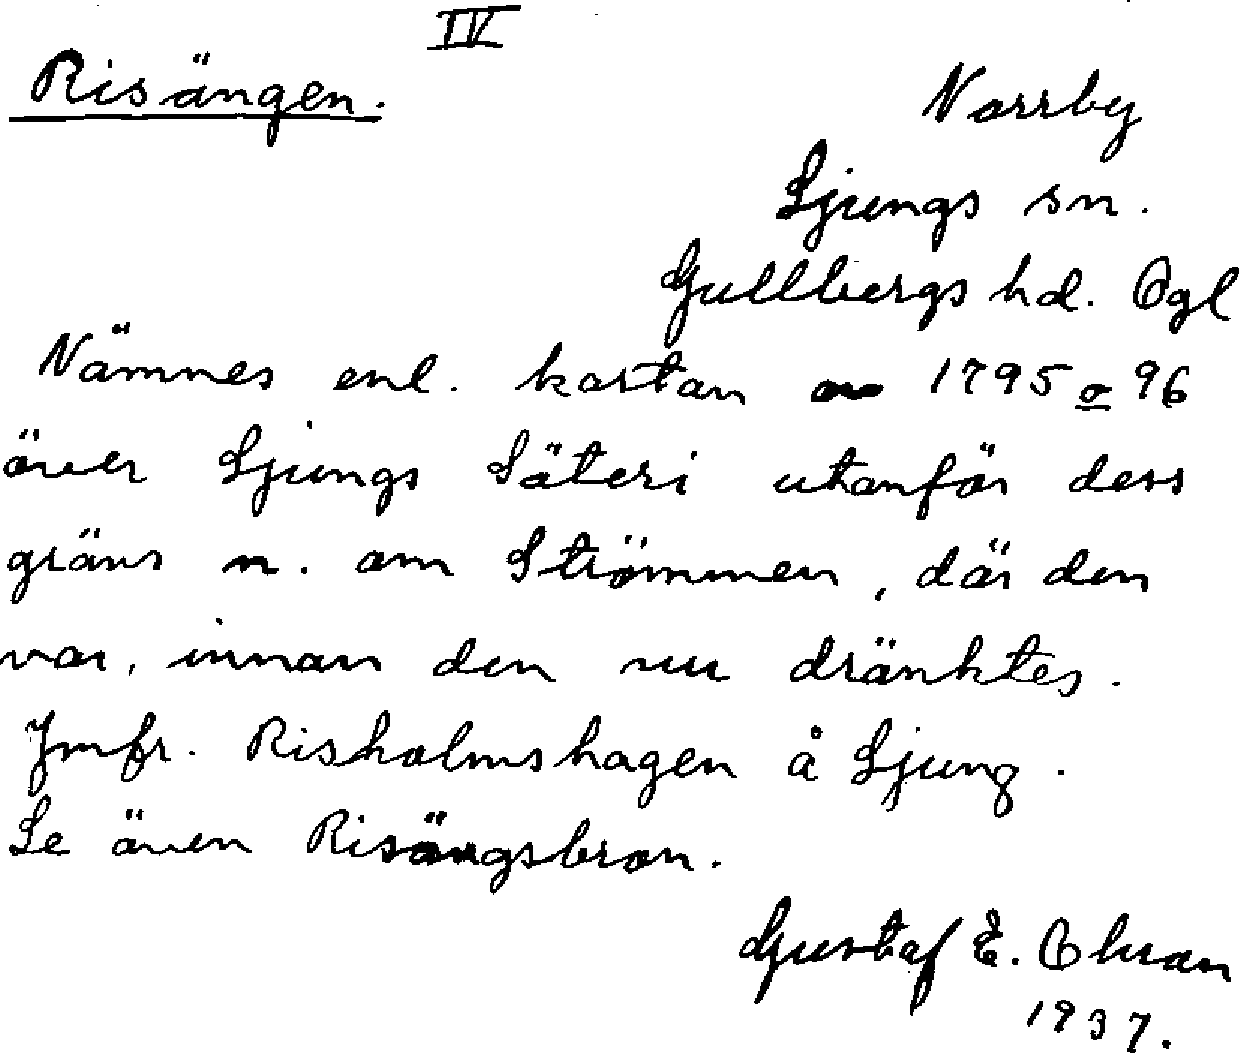 IV
Risängen.
Norrby
Ljungs sn.
Gullbergs hd. Ögl
Nämnes enl. kartan 1795 o 96
över Ljungs Säteri utanför dess
gräns n. om Strömmen, där den
var, innan den nu dränktes.
Jmfr. Risholmshagen å Ljung.
Se även Risängsbron.
Gustaf E.
1937.